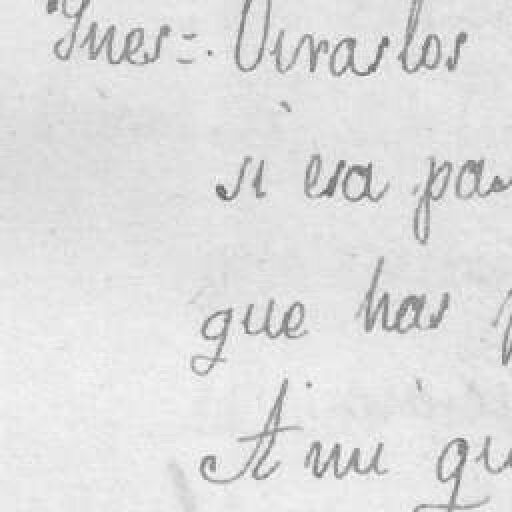 Ines=. Oiraslos
si esa pas
que has p
A mi qu